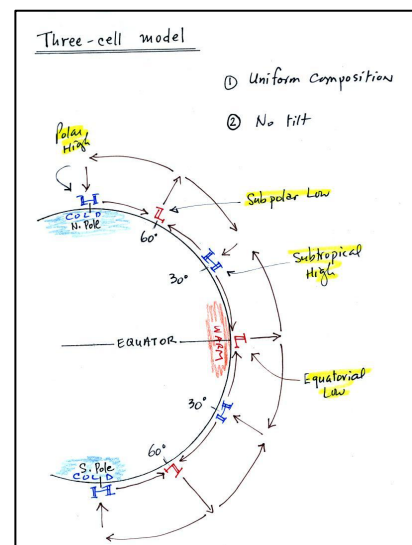 Three-cell model
① Uniform Composition
② No tilt
Polar
High
H
COLD
N. Pole
L
Subpolar Low
60°
H
Subtropical
High
30°
EQUATOR
WARM
L
Equatorial
Low
30°
H
60°
L
S. Pole
COLD
H